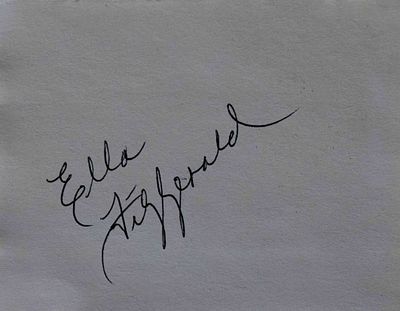 Ella
Fitzgerald